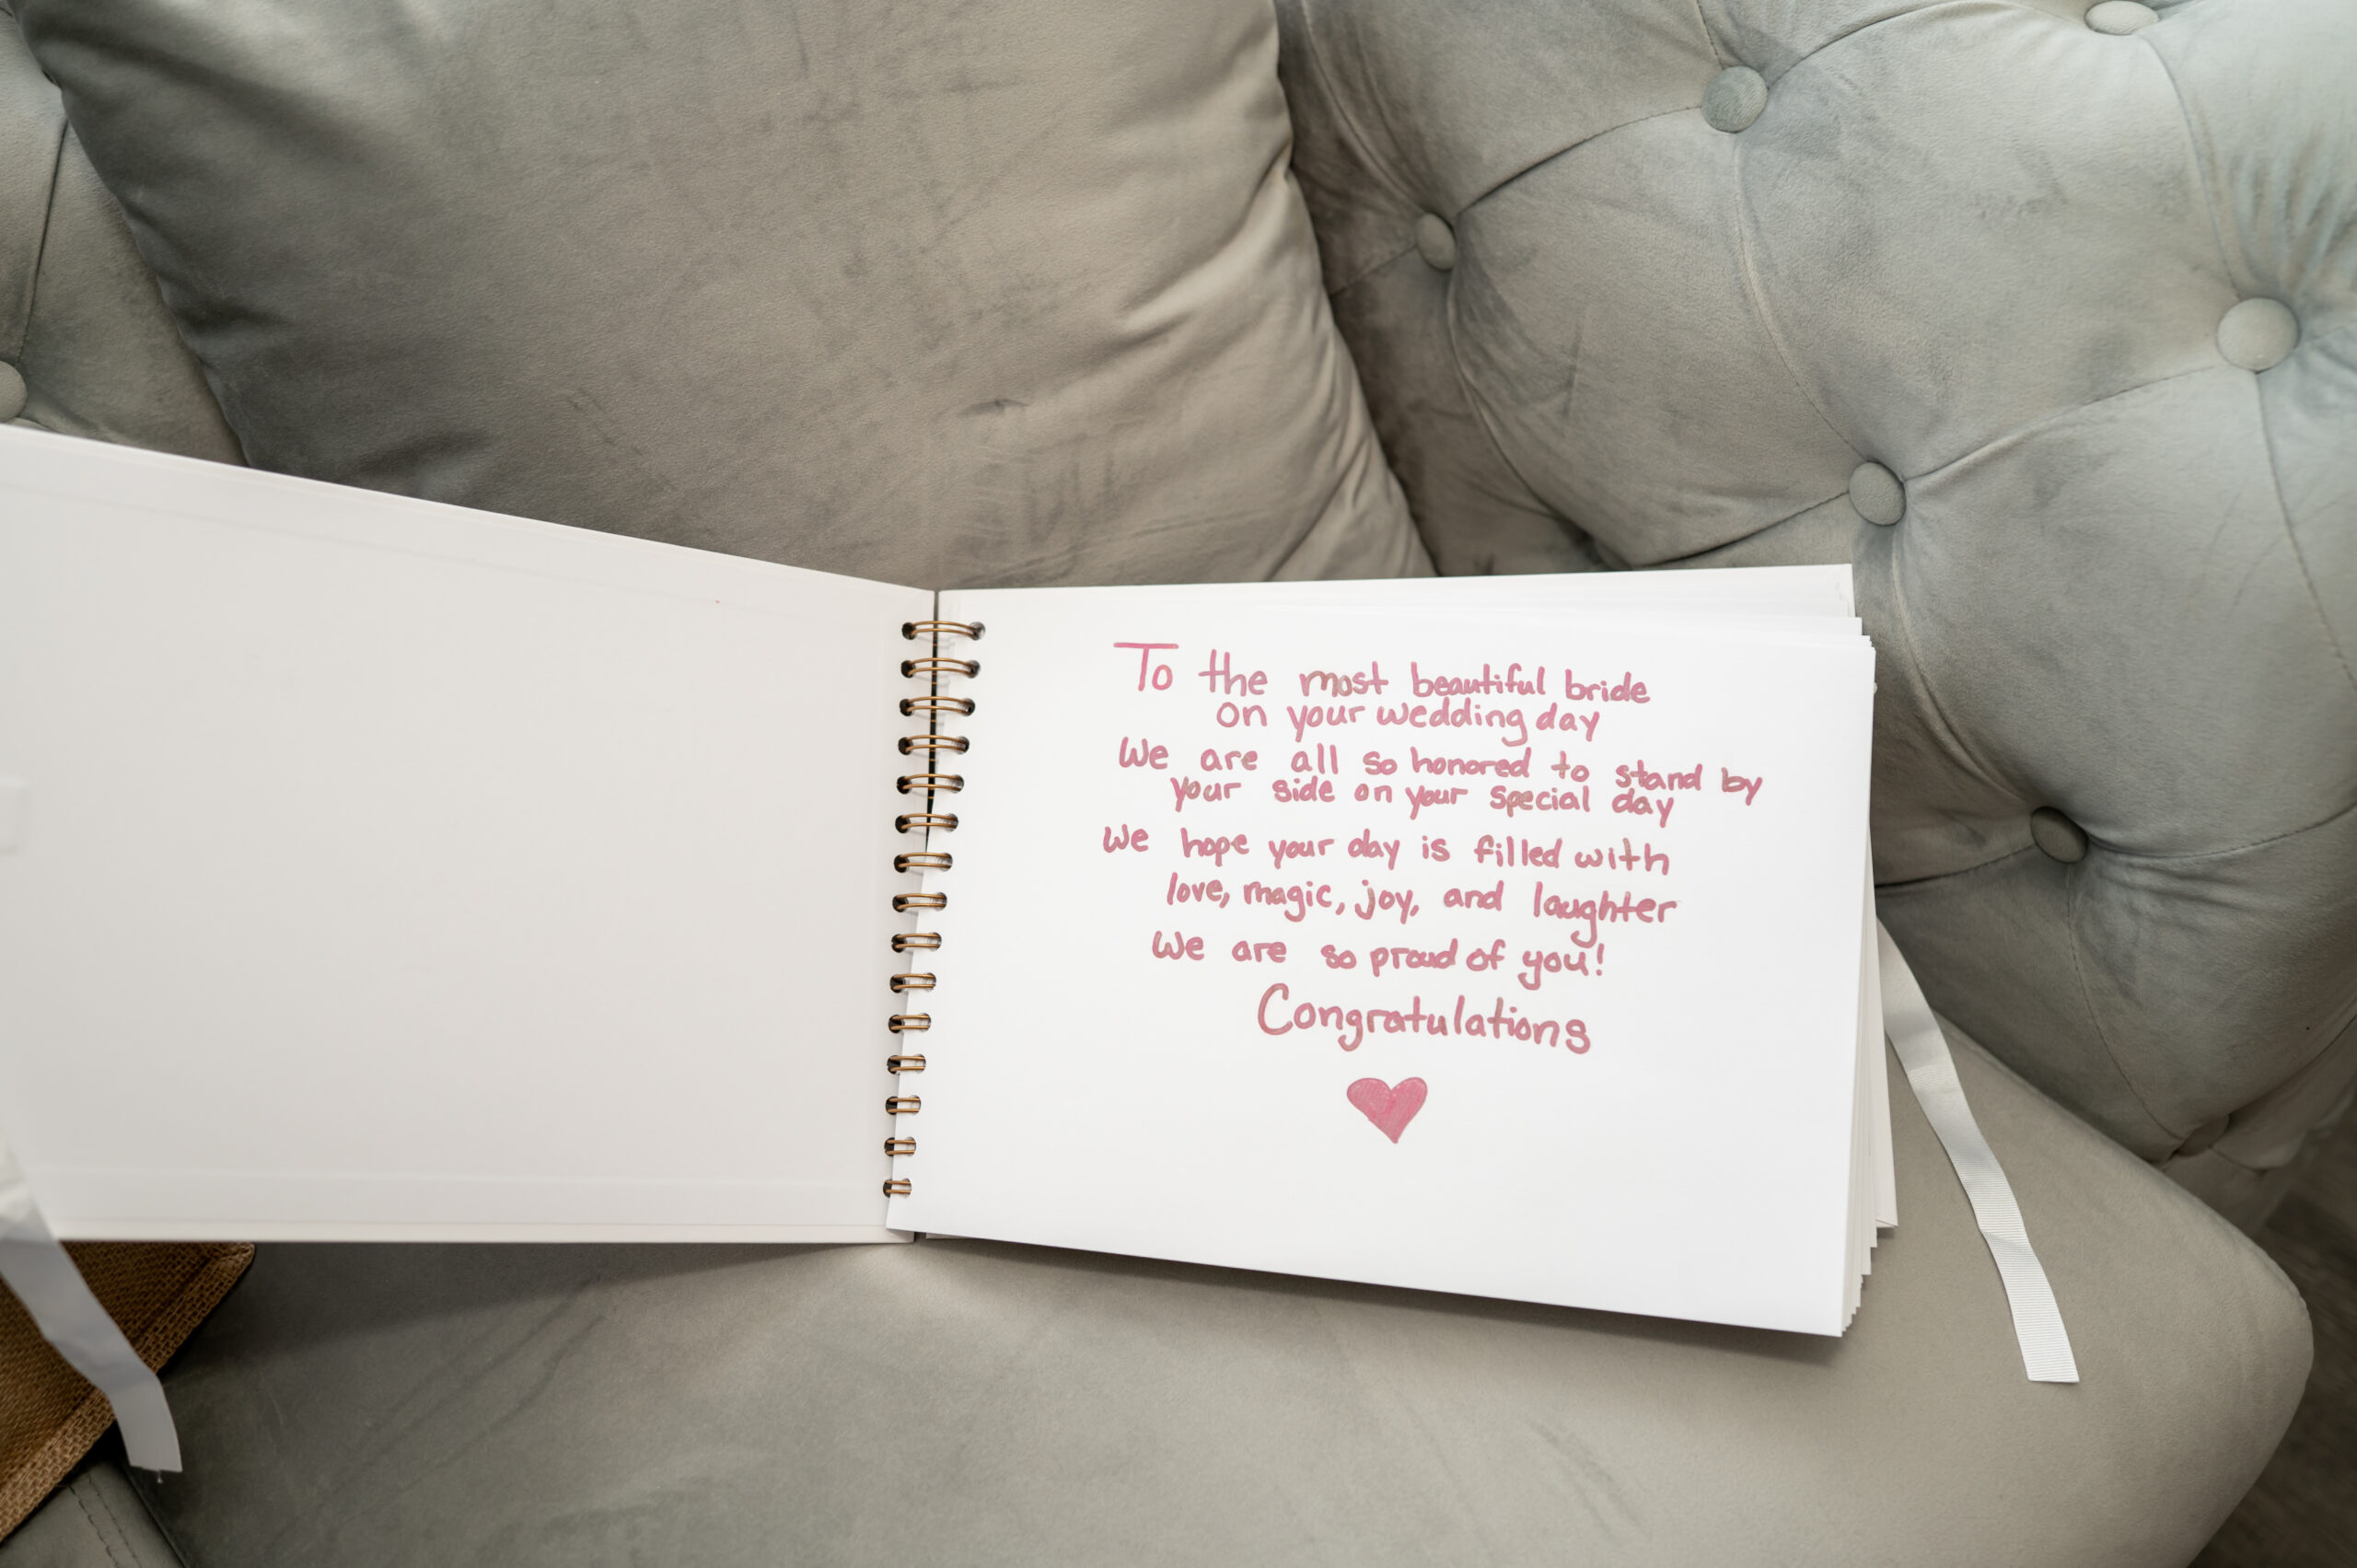 To the most beautiful bride
on your wedding day
We are all so honored to stand by
your side on your special day
We hope your day is filled with
love, magic, joy, and laughter
We are so proud of you!
Congratulations